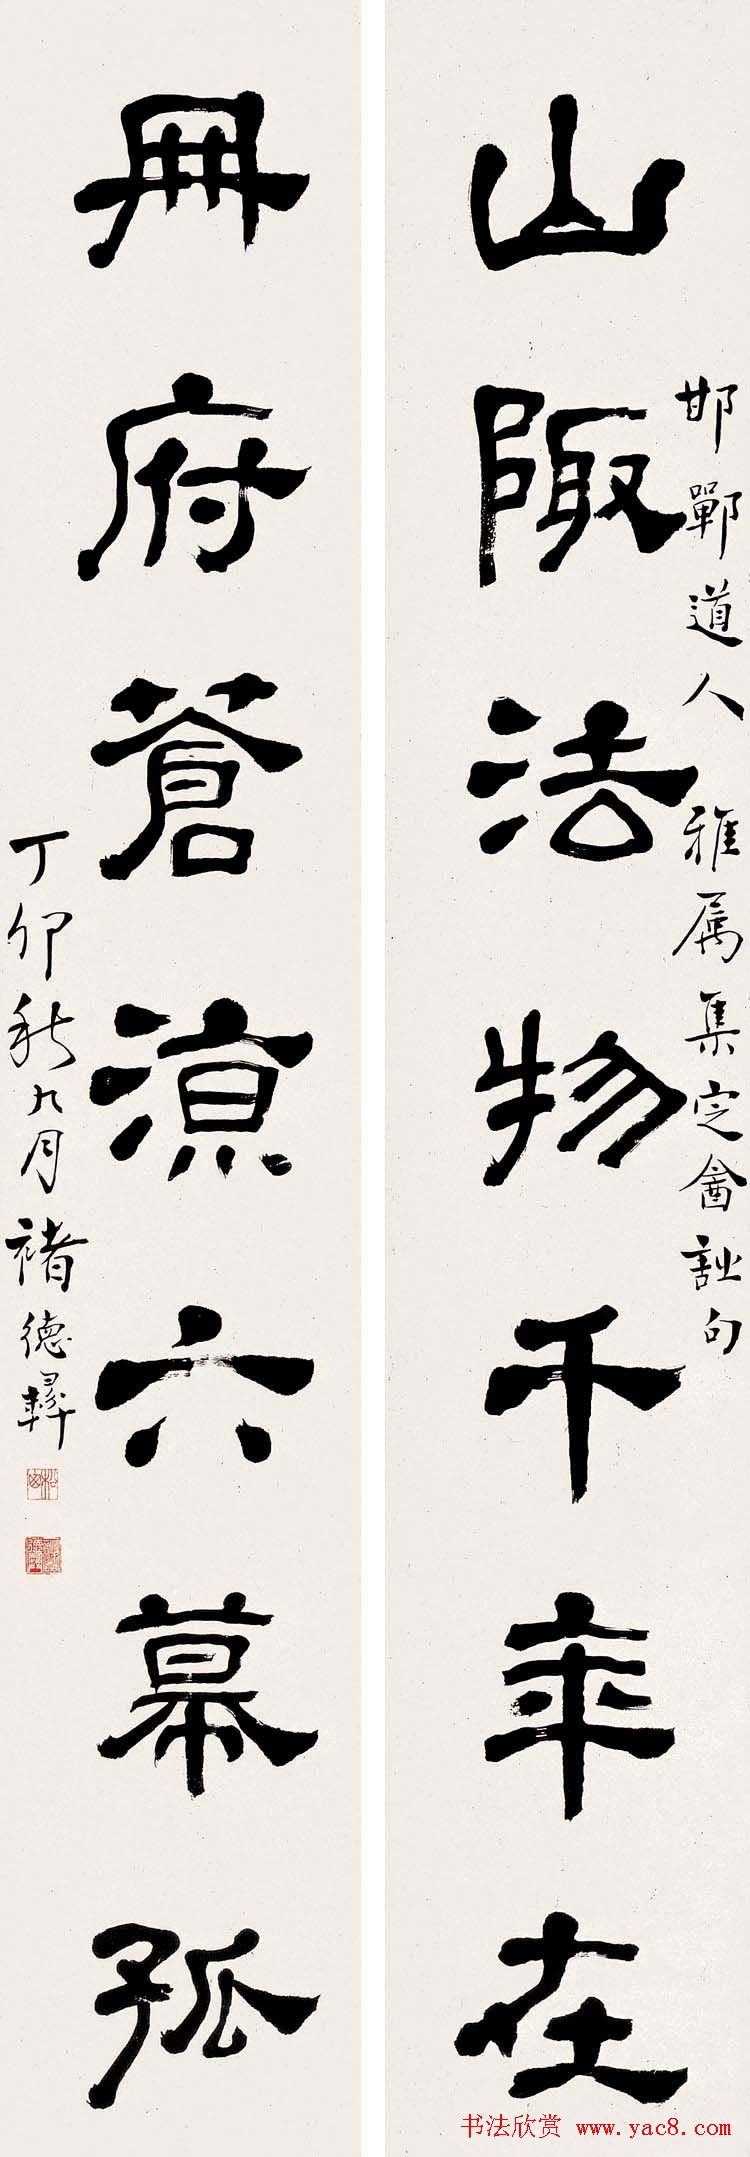 邯鄲道人　雅属集定盦詩句
山陬法物千年在
冊府蒼涼六幕孤
丁卯秋九月褚德彝
书法欣赏 www.yac8.com